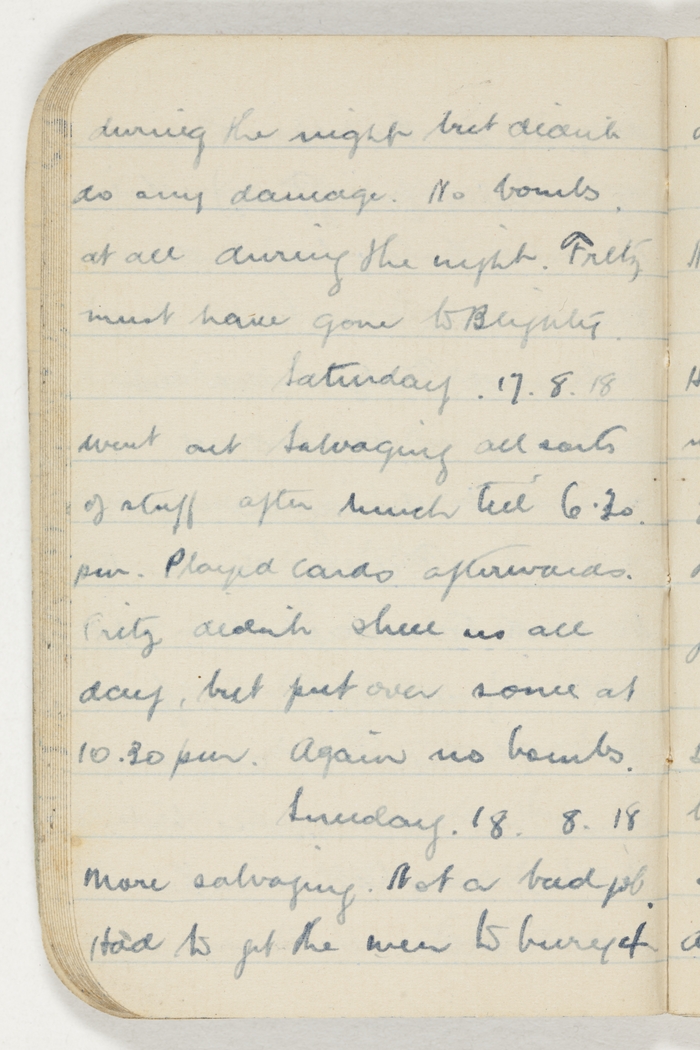 during the night but didnt
do any damage. No bombs.
at all during the night. Fritz
must have gone to Blighty.
Saturday. 17. 8. 18
went out salvaging all sorts
of stuff after lunch till 6.30.
pm. Played cards afterwards.
Fritz didnt shell us all
day, but put over some at
10.30 pm. Again no bombs.
Sunday. 18. 8. 18
More salvaging. Not a bad job.
Had to get the men to bury 4